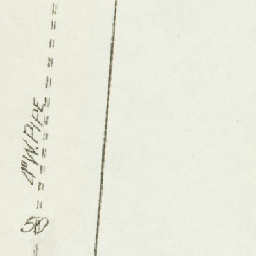 4" W. PIPE
50